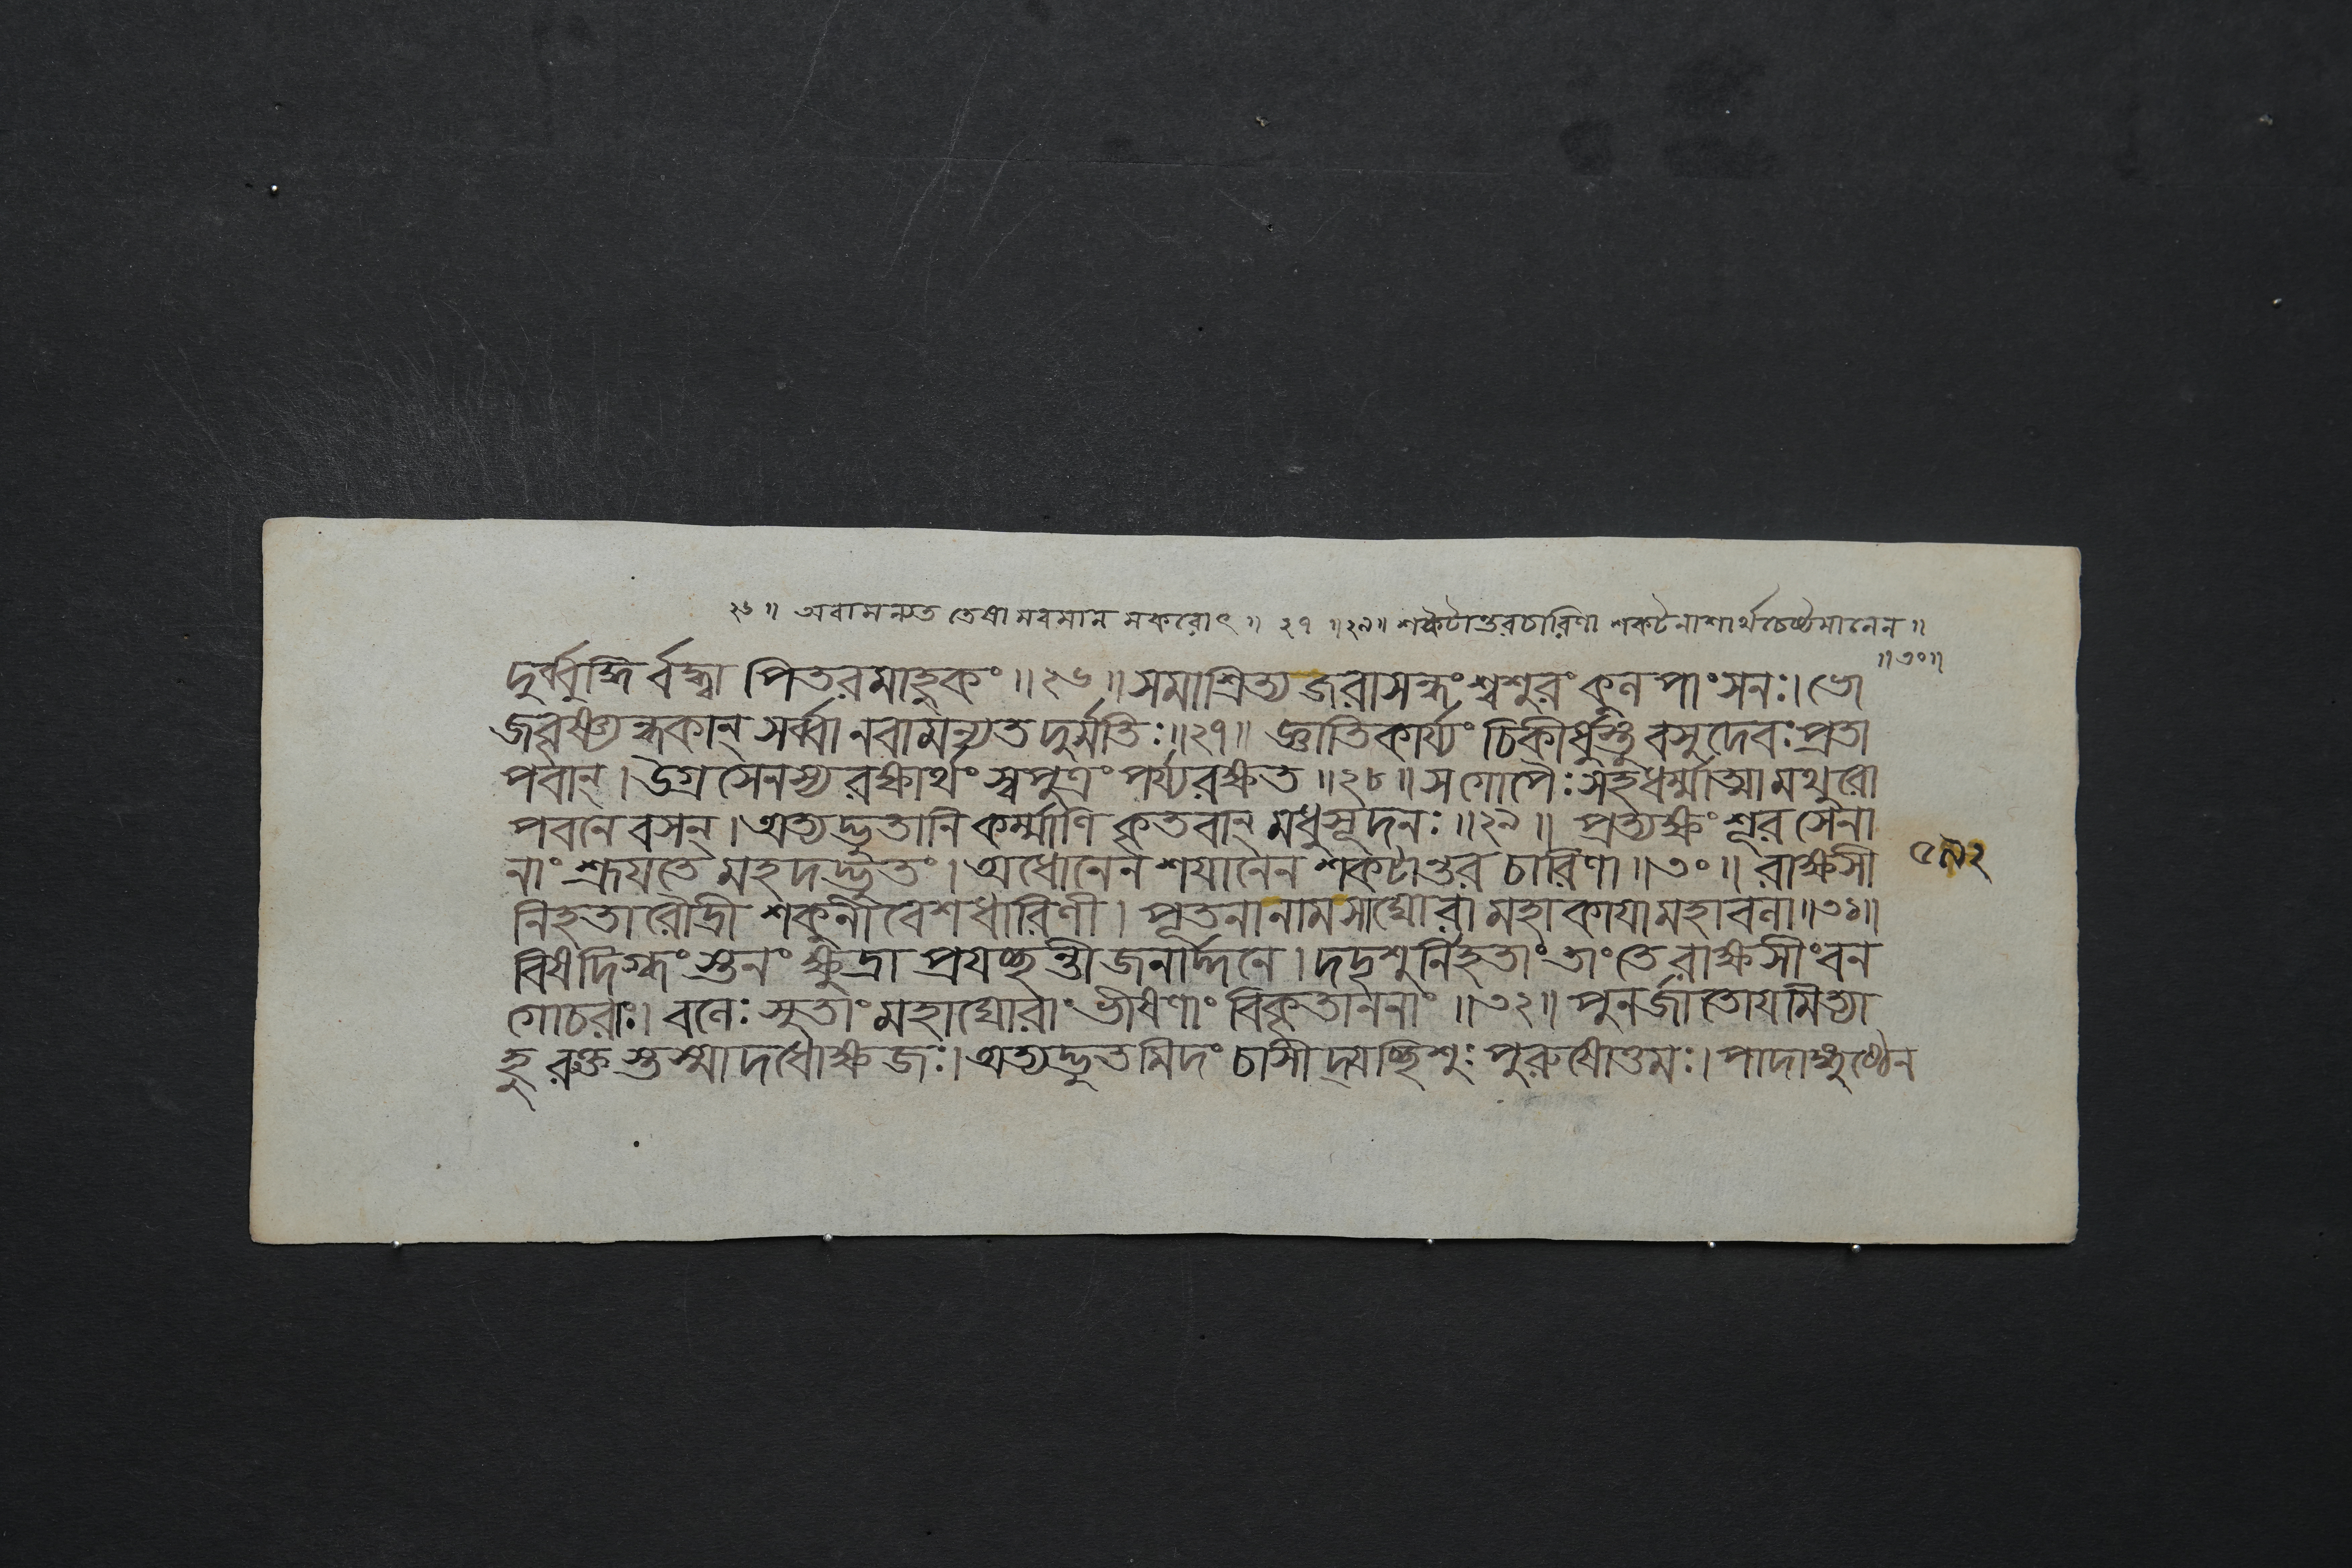 ২৬॥ অবামন্যত তেষামবমানমকরোৎ॥ ২৭ ॥২৯॥ শকটান্তরচারিণা শকটনাশার্থচেষ্টমানেন॥
॥৩০॥
দুর্ব্বুদ্ধির্বদ্ধ্বা পিতরমাহুকং॥২৬॥ সমাশ্রিত্য জরাসন্ধং শ্বশুরং কুলপাংসনঃ। ভো
জবৃষ্ণ্যন্ধকান্ সর্ব্বানবামন্যত দুর্মতিঃ॥২৭॥ জ্ঞাতিকার্য্যং চিকীর্ষুস্তু বসুদেবঃ প্রতা
পবান্। উগ্রসেনস্য রক্ষার্থং স্বপুত্রং পর্য্যরক্ষত॥২৮॥ স গোপৈঃ সহ ধর্ম্মাত্মা মথুরো
পবনে বসন্। অত্যদ্ভুতানি কর্ম্মাণি কৃতবান্ মধুসূদনঃ॥২৯॥ প্রত্যক্ষং শূরসেনা
নাং শ্রূয়তে মহদদ্ভুতং। অধোনেন শয়ানেন শকটান্তরচারিণা॥৩০॥ রাক্ষসী
৫৯২
নিহতা রৌদ্রী শকুনীবেশধারিণী। পূতনা নাম সা ঘোরা মহাকায়া মহাবলা॥৩১॥
বিষদিগ্ধং স্তনং ক্ষুদ্রা প্রযচ্ছন্তী জনার্দ্দনে। দদৃশুর্নিহতাং তাং তে রাক্ষসীং বন
গোচরাঃ। বলেঃ সুতাং মহাঘোরাং ভীষণাং বিকৃতাননাং॥৩২॥ পুনর্জাতোয়মিত্যা
হুরুক্তস্তস্মাদধোক্ষজঃ। অত্যদ্ভুতমিদং চাসীদ্যচ্ছিশুঃ পুরুষোত্তমঃ। পাদাঙ্গুষ্ঠেন